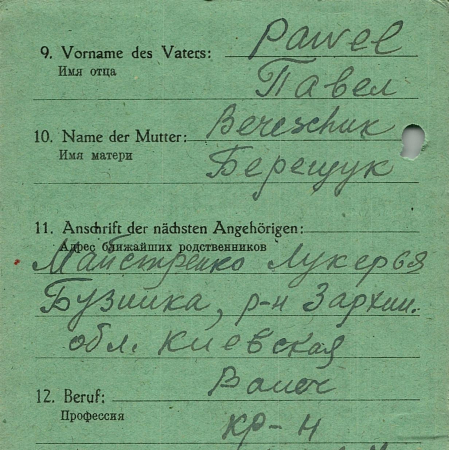 9. Vorname des Vaters: Pawel
Имя отца
Павел
10. Name der Mutter: Bereschuk
Имя матери
Берещук
11. Anschrift der nächsten Angehörigen:
Адрес ближайших родственников
Майстренко Лукерья
Бузивка, р-н
обл. Киевская
12. Beruf: Bauer
Профессия
кр-н